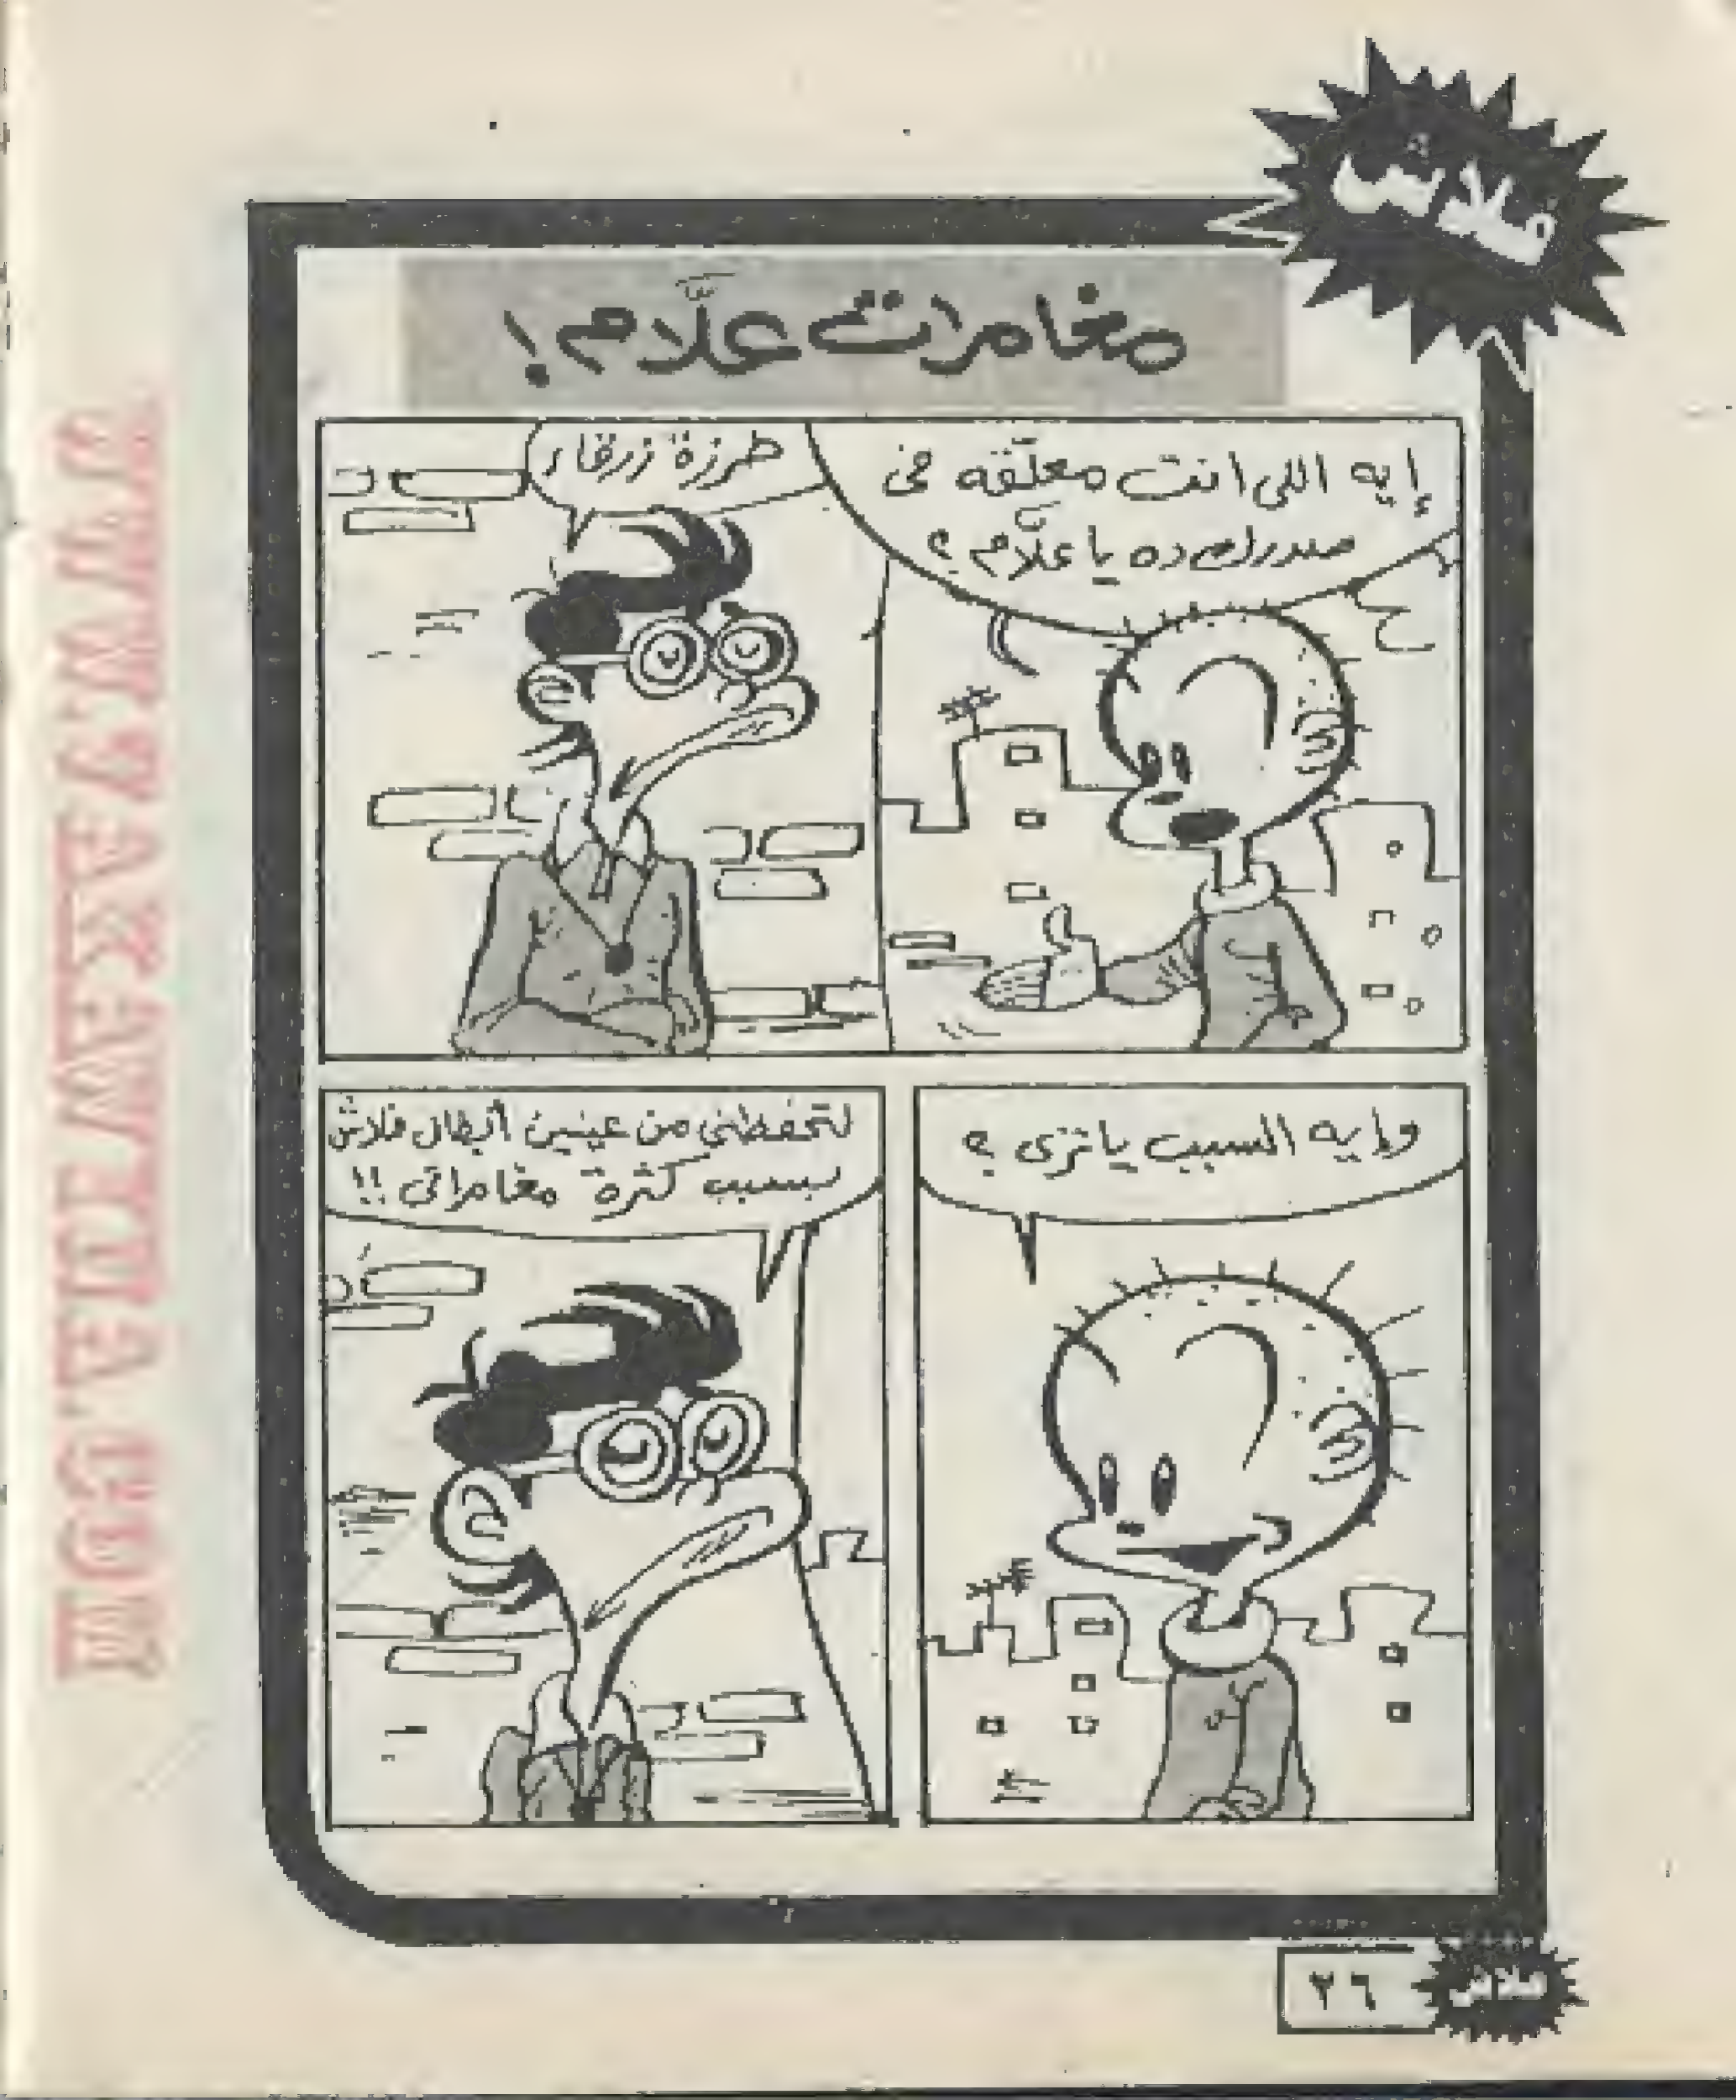 فلاش
مغامرات علّام!
إيه اللى انت معلّقه فى
صدرك ده يا علّام؟
خرزة زرقاء
وإيه السبب ياترى؟
لتحفظنى من عينين أبطال فلاش
بسبب كثرة مغامراتى!!
٢٦
فلاش